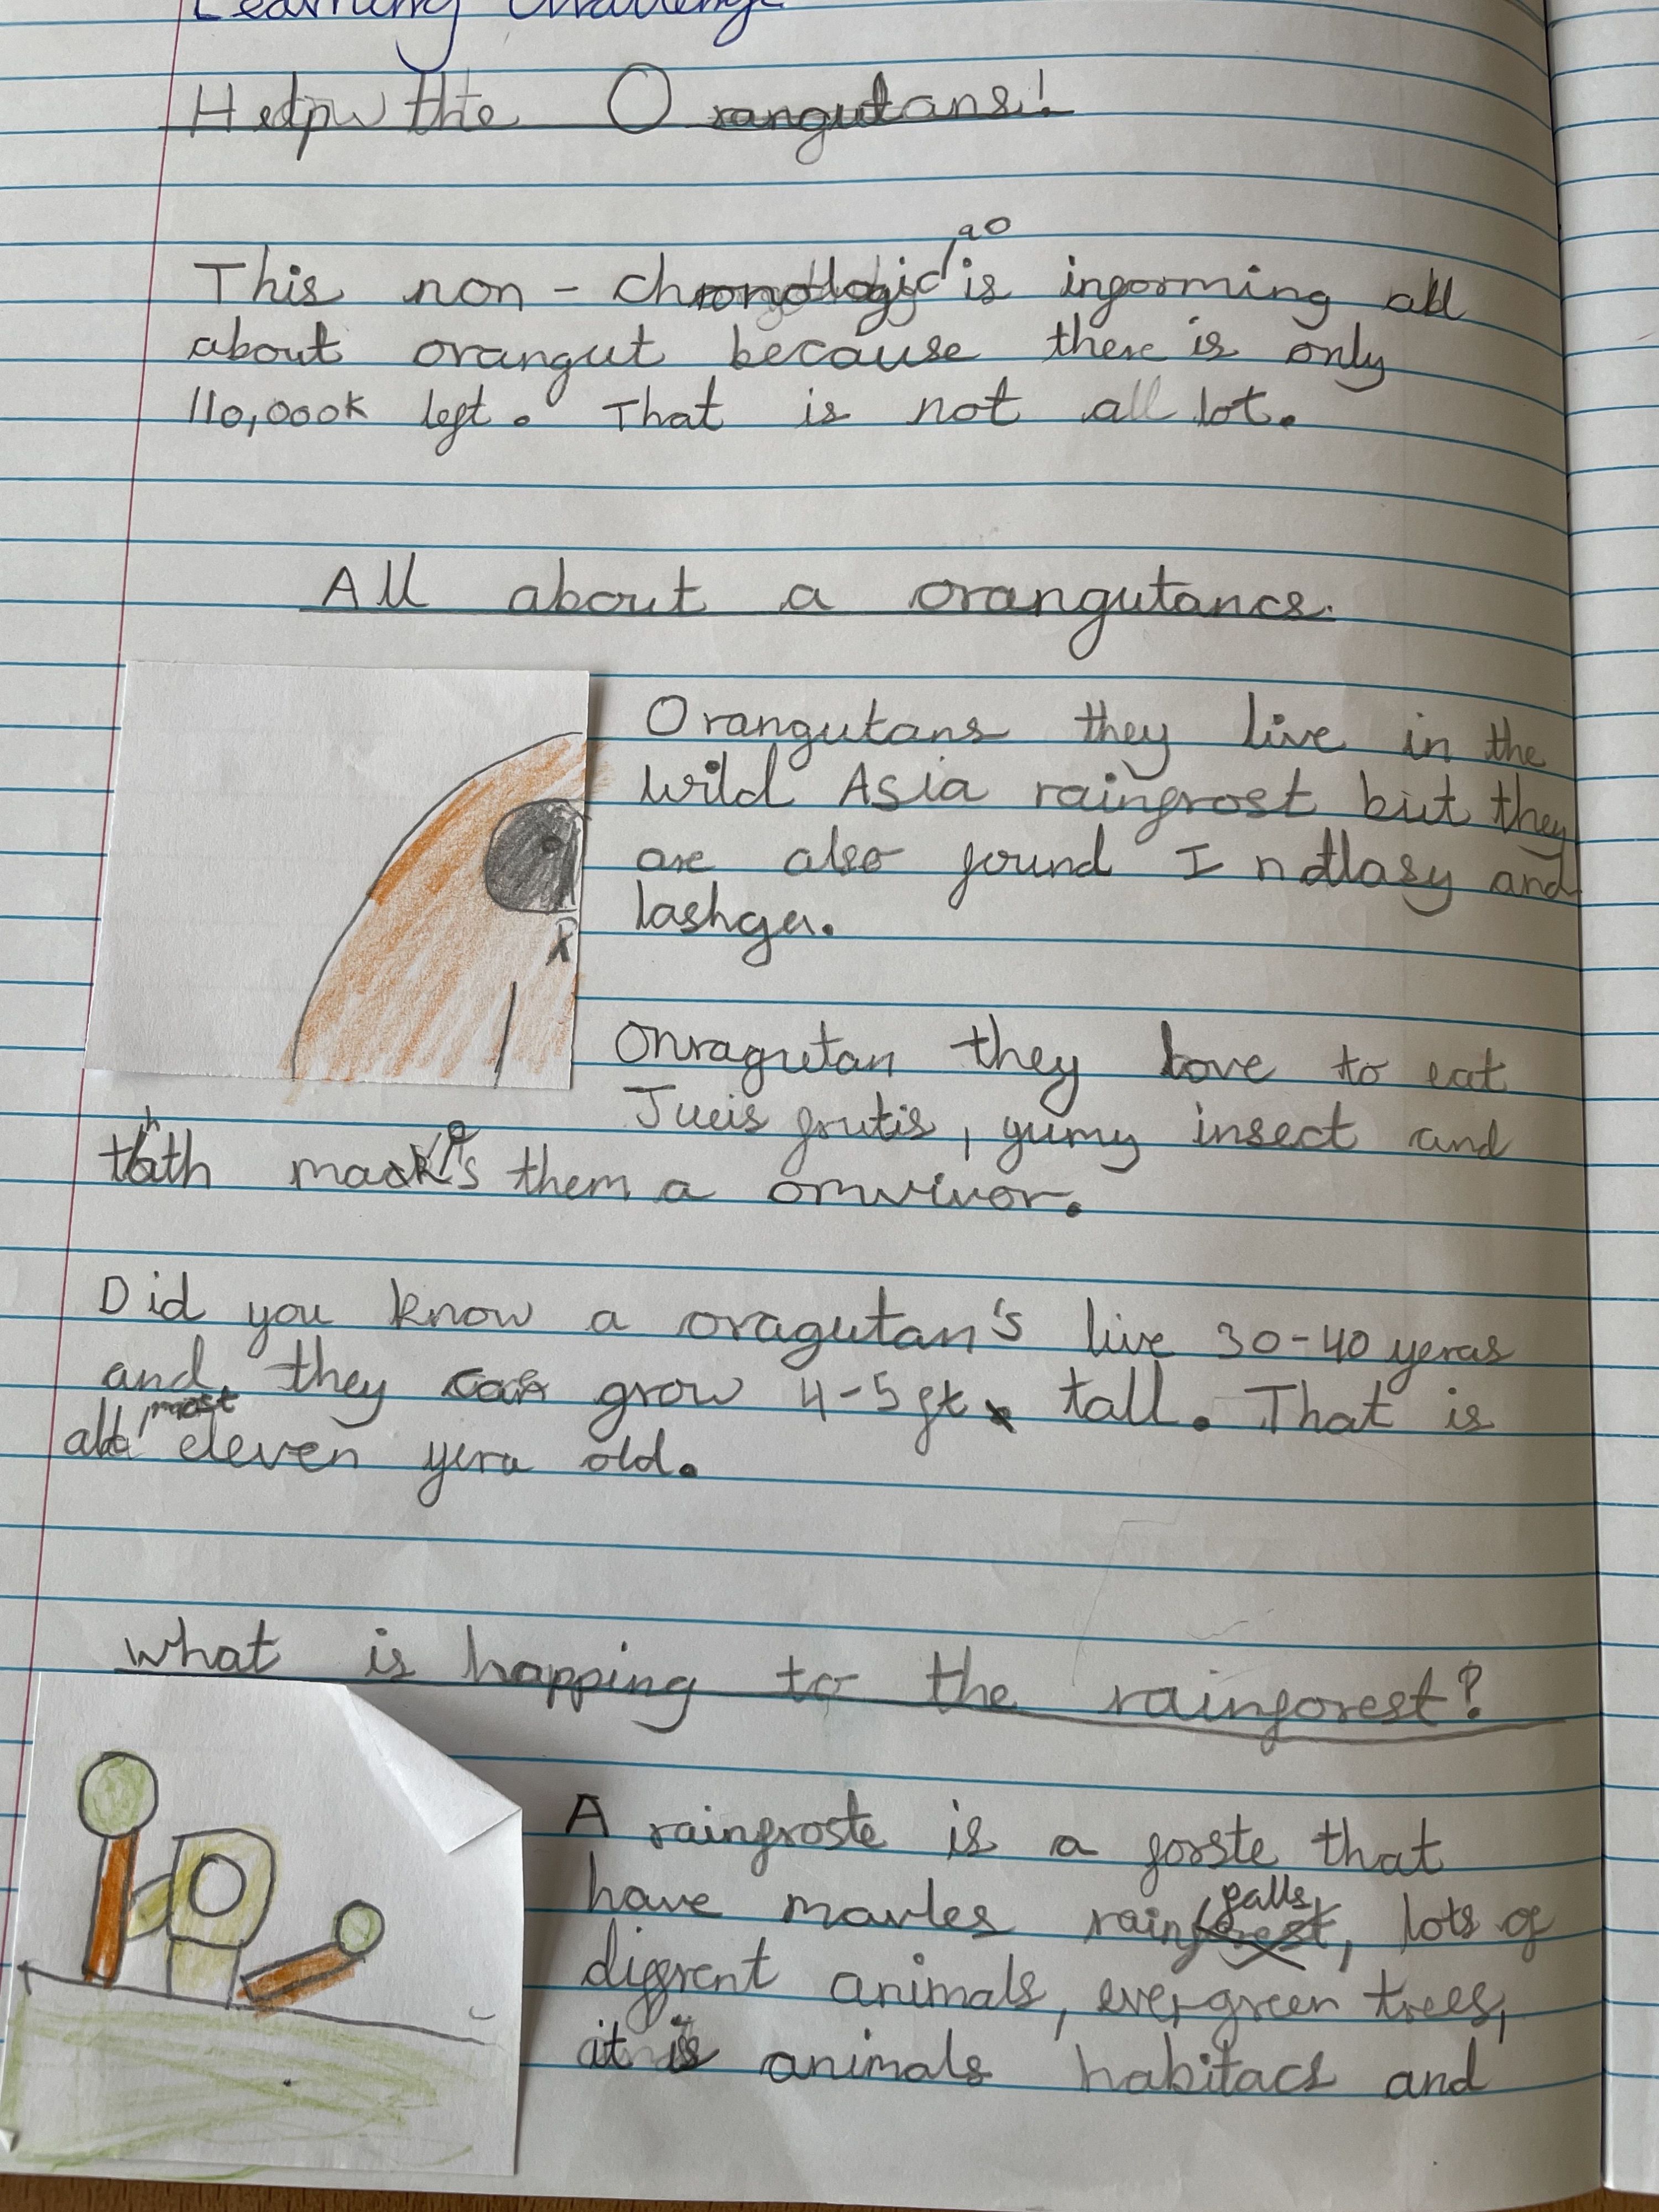 Learning Challenge
Help the Orangutans!
ao
This non - chronologic is informing all
about orangut because there is only
110,000k left. That is not all lot.
All about a orangutancs.
Orangutans they live in the
wild Asia rainfrost but they
are also found I ndtlasy and
lashger.
Onragutan they love to eat
Jueis frutis, yumy insect and
thath mack's them a omvivor.
Did you know a oragutan's live 30-40 yeras
and they can grow 4-5ft tall. That is
all most eleven yera old.
what is happing to the rainforest?
A rainfroste is a forste that
have marles rainfalls, lots of
diffrent animals, ever-green trees,
it is animals habitacs and